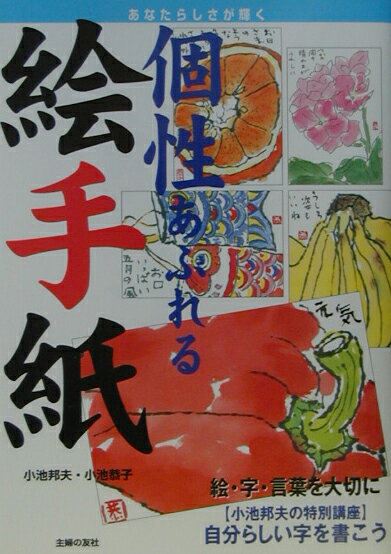 あなたらしさが輝く
個性あふれる
絵手紙
元気
お口
いっぱい
五月の風
うしろ
姿も
いいね
小池邦夫・小池恭子
絵・字・言葉を大切に
【小池邦夫の特別講座】
自分らしい字を書こう
主婦の友社